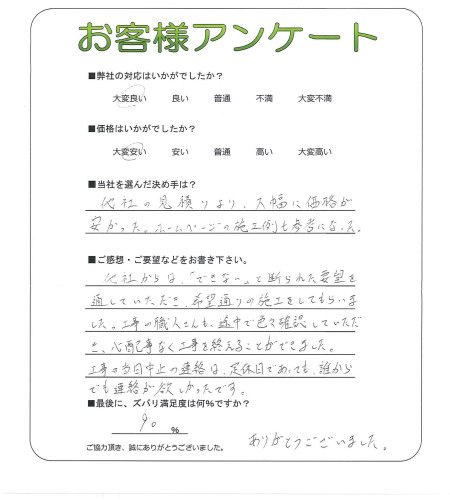 お客様アンケート
■弊社の対応はいかがでしたか？
大変良い 良い 普通 不満 大変不満
■価格はいかがでしたか？
大変安い 安い 普通 高い 大変高い
■当社を選んだ決め手は？
他社の見積りより、大幅に価格が
安かった。ホームページの施工例も参考になった。
■ご感想・ご要望などをお書き下さい。
他社からは、「できない」と断られた要望を
通していただき、希望通りの施工をしてもらいま
した。工事の職人さんも、途中で色々確認していただ
き、心配事なく工事を終えることができました。
工事の当日中止の連絡は、定休日であっても、誰から
でも連絡が欲しかったです。
■最後に、ズバリ満足度は何％ですか？
90 ％
ありがとうございました。
ご協力頂き、誠にありがとうございました。